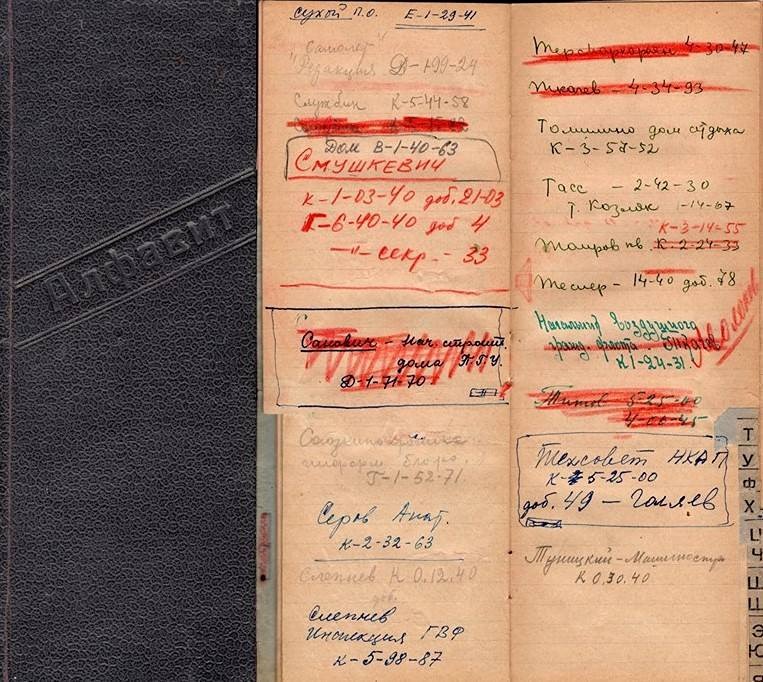 Алфавит
Сухой П.О. Е-1-29-41
"Самолет"
Редакция Д-1-99-24
Службин К-5-44-58
Дом В-1-40-63
СМУШКЕВИЧ
К-1-03-40 доб. 21-03
Г-6-40-40 доб 4
-"- секр. - 33
Санович - Нач. строит.
дома ПГУ.
Д-1-71-70
бюро.
Г-1-52-71.
Серов Анат.
К-2-32-63
Слепнев К 0.12.40
доб.
Слепнев
Инспекция ГВФ
К-5-98-87
4-30-47
Ткачев - 4-34-93
Томилино дом отдыха
К-3-57-52
Тасс - 2-42-30
т. Козляк -14-67
К-3-14-55
Таиров кв. К-2-24-33
Теслер - 14-40 доб. 78
Начальник Воздушного
гражд. флота Ткачев
К1-24-31
Титов 5-25-00
4-00-45
Техсовет НКАП
К-5-25-00
доб. 49 - Галяев
Туницкий - Машиностр
К 0.30.40
Т
У
Ф
Х
Ц
Ч
Ш
Щ
Э
Ю
Я